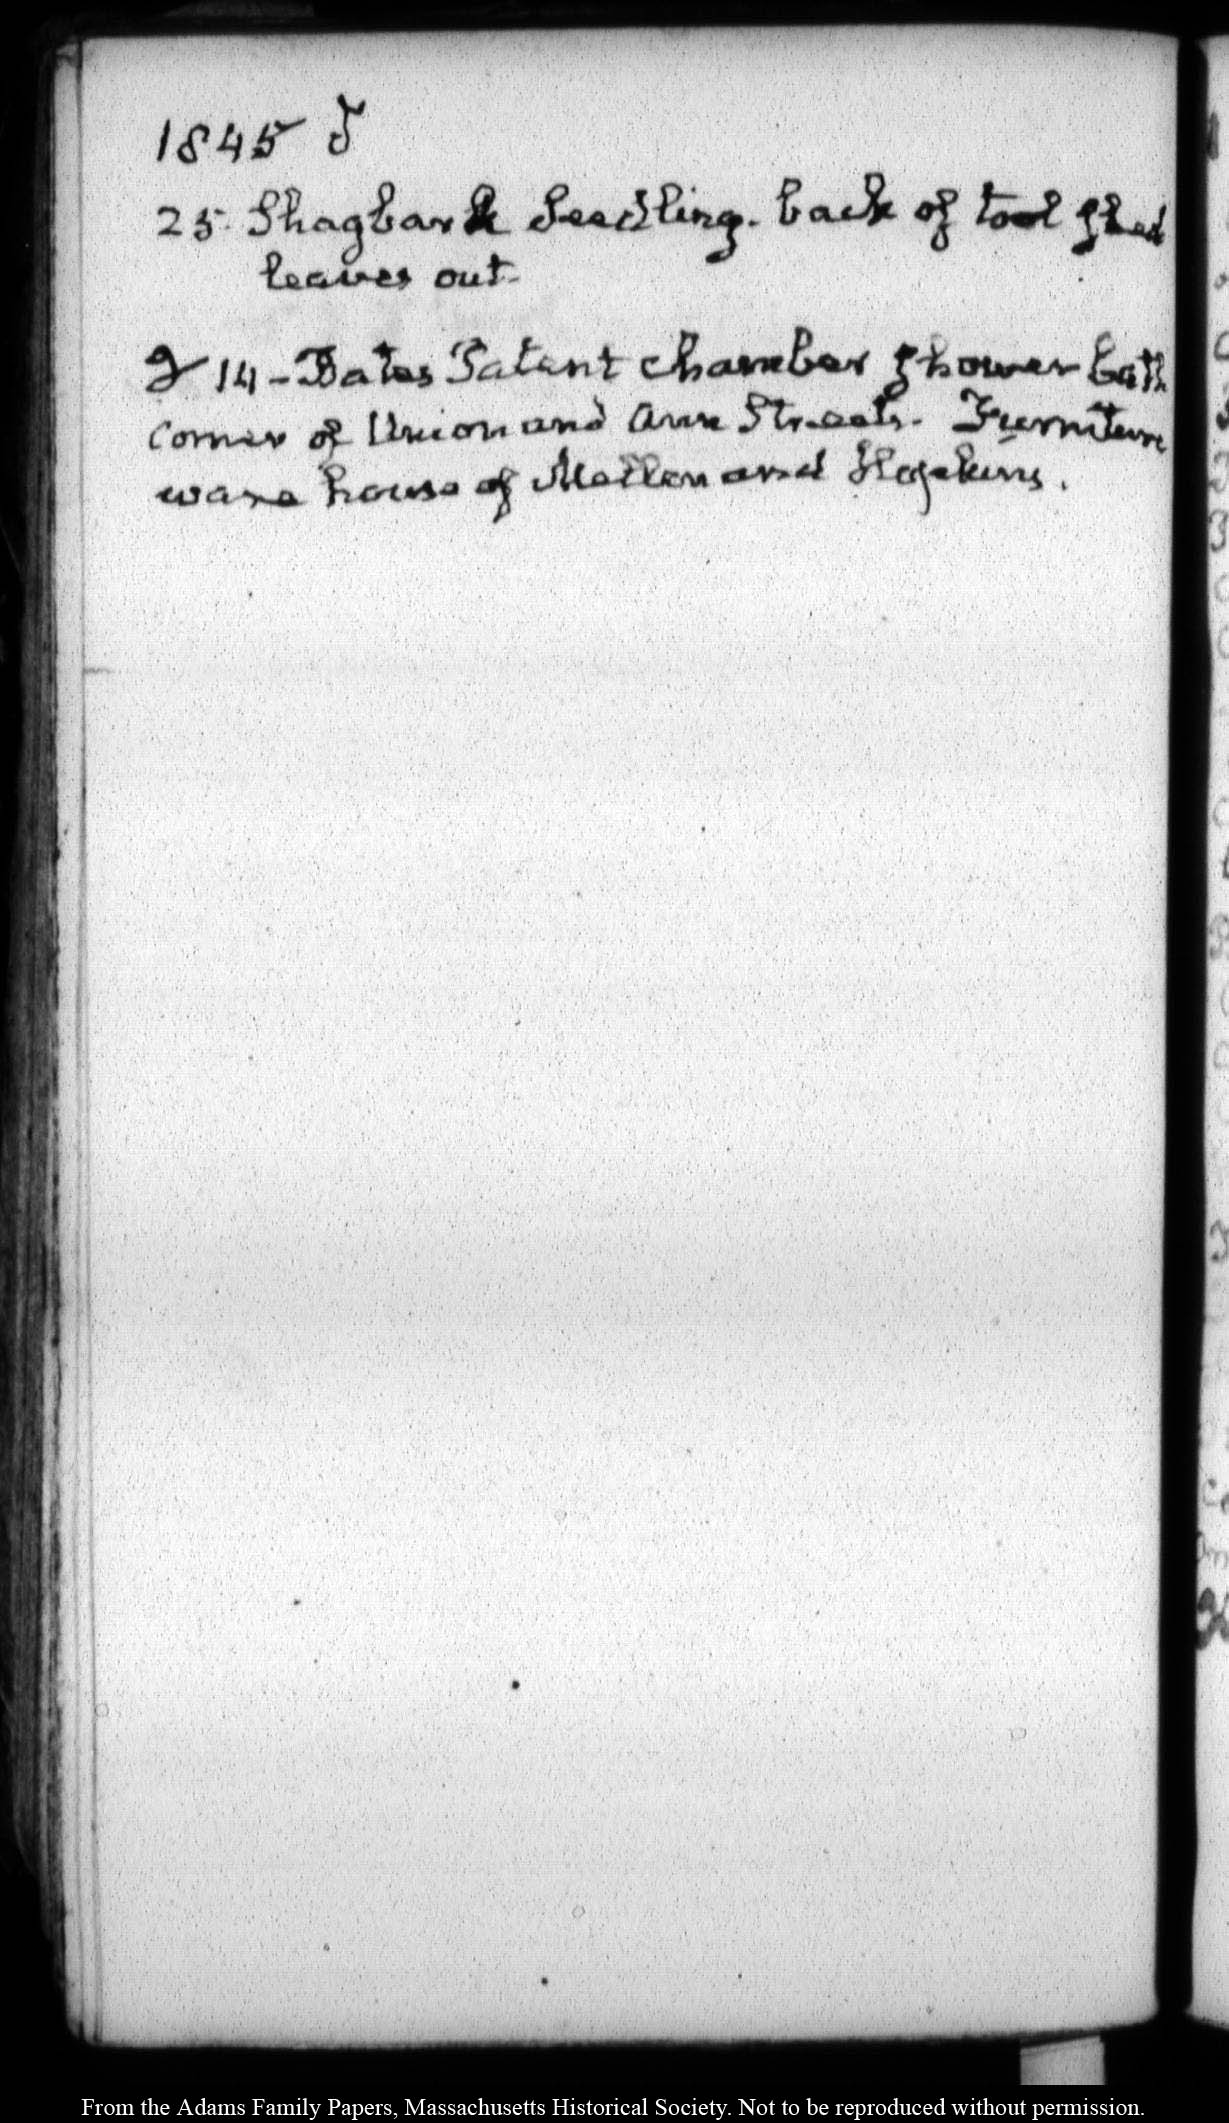 1845 J
25. Shagbark Seedling. back of tool shed
leaves out.
14 - Bates Patent chamber shower bath
corner of Union and Ann Streets. Furniture
ware house of and
From the Adams Family Papers, Massachusetts Historical Society. Not to be reproduced without permission.